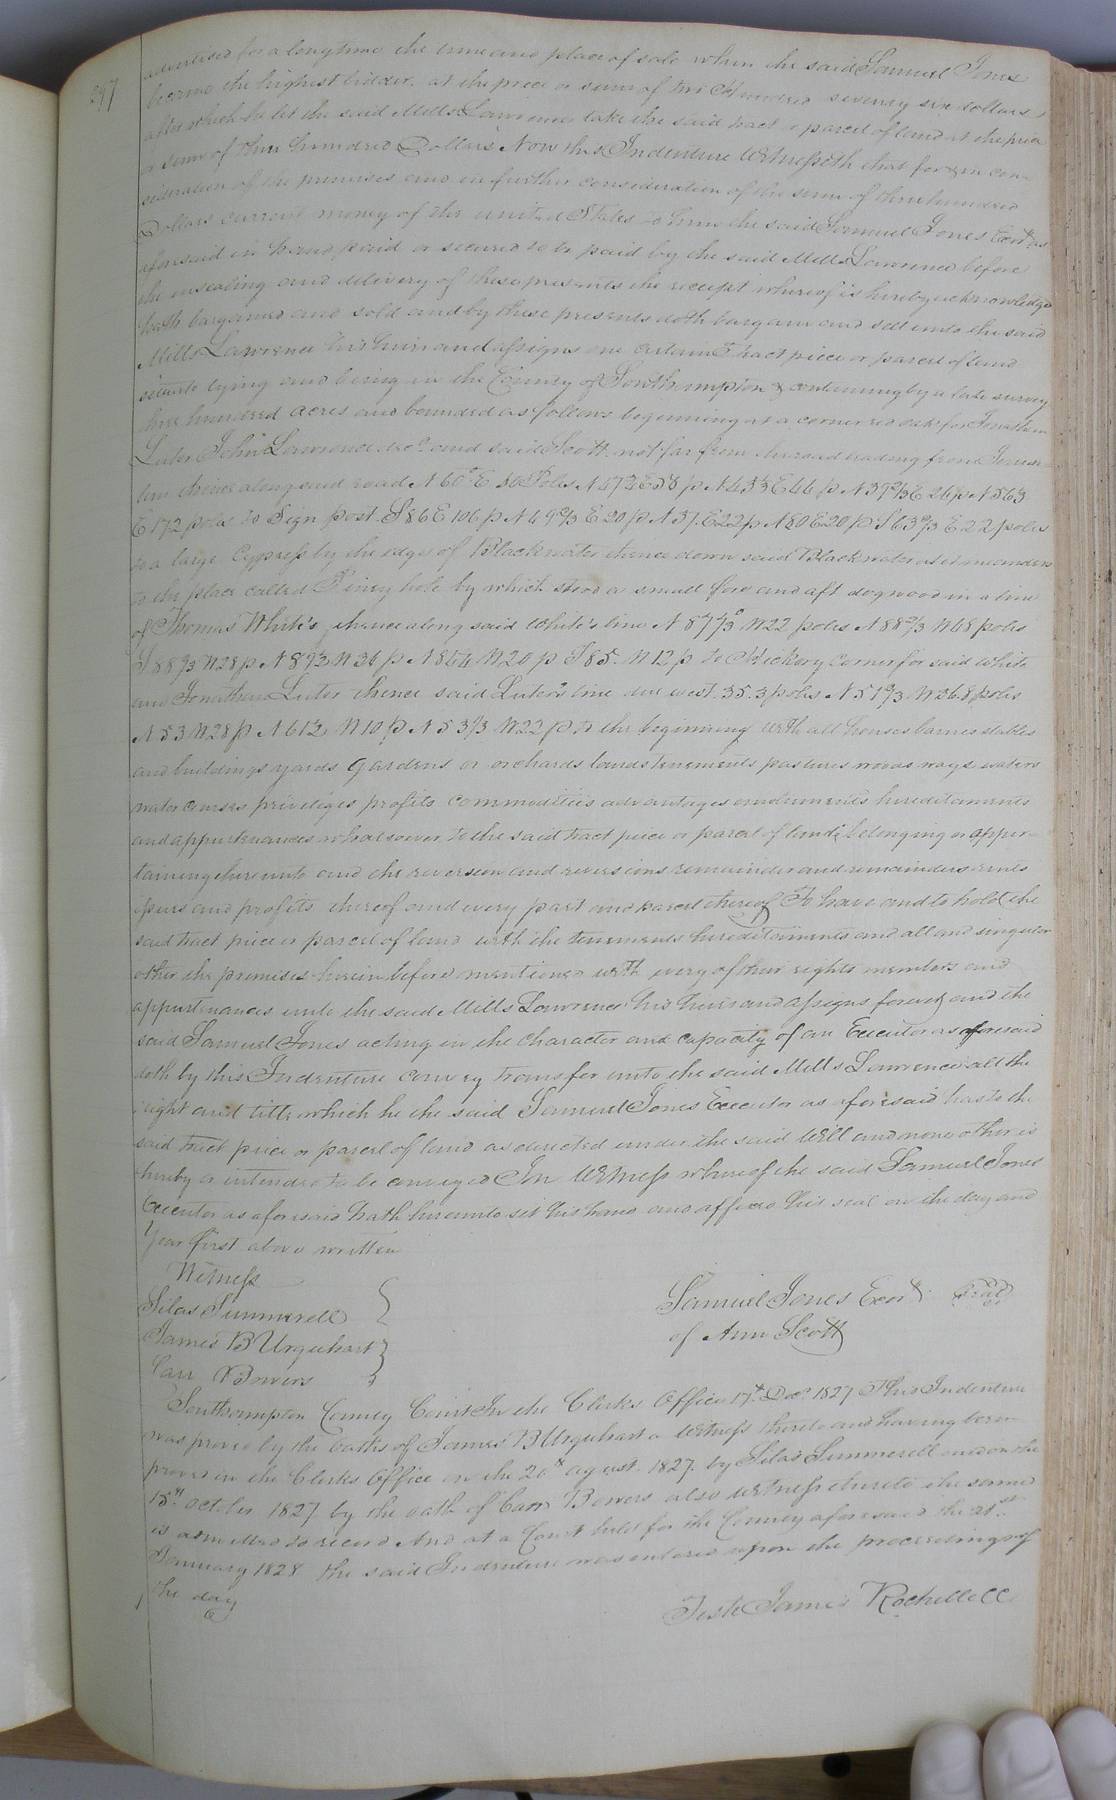 297
advertised for a long time the time and place of sale when the said Samuel Jones
became the highest bidder at the price or sum of two Hundred seventy six dollars
after which he let the said Mills Lawrence take the said tract or parcel of land at the price
or sum of three hundred Dollars Now this Indenture Witnesseth that for & in con-
sideration of the premises and in further consideration of the sum of three hundred
Dollars current money of the united States to him the said Samuel Jones Exor as
aforesaid in hand paid or secured to be paid by the said Mills Lawrence before
the ensealing and delivery of these presents the receipt whereof is hereby acknowledged
hath bargained and sold and by these presents doth bargain and sell unto the said
Mills Lawrence his heirs and assigns one certain Tract piece or parcel of land
situate lying and being in the County of Southampton & containing by a late survey
hundred acres and bounded as follows beginning at a corner red oak for Jonathan
Luter John Lawrence decd and said Scott not far from the road leading from Jerusa-
lem thence along said road N 60° E 50 Poles N 47½ E 58 p N 43½ E 46 p N 39⅔ E 26 p N 56½
E 172 poles to Sign post S 86 E 106 p N 49⅔ E 20 p N 37 E 22 p N 80 E 20 p S 63⅔ E 22 poles
to a large Cypress by the edge of Blackwater thence down said Blackwater as it meanders
to the place called Piney hole by which stood a small fore and aft dogwood in a line
of Thomas White's thence along said White's line N 87⅓ W 22 poles N 88⅔ W 68 poles
S 88⅔ W 28 p N 89½ W 36 p N 86¼ W 20 p S 85 W 12 p to Hickory corner for said White
and Jonathan Luter thence said Luter's line due west 35.3 poles N 51⅔ W 36.8 poles
N 53 W 28 p N 61½ W 10 p N 53⅓ W 22 p to the beginning with all houses barnes stables
and buildings yards Gardens or orchards lands tenements pastures woods ways waters
water courses priviliges profits commodities advantages emoluments hereditaments
and appurtenances whatsoever to the said tract piece or parcel of land belonging or apper-
taining thereunto and the reversion and reversions remainder and remainders rents
issues and profits thereof and every part and parcel thereof To have and to hold the
said tract piece or parcel of land with the tenements hereditaments and all and singular
other the premises herein before mentioned with every of their rights members and
appurtenances unto the said Mills Lawrence his heirs and assigns forever and the
said Samuel Jones acting in the character and capacity of an Executor as aforesaid
doth by this Indenture convey transfer unto the said Mills Lawrence all the
right and title which he the said Samuel Jones Executor as aforesaid has to the
said tract piece or parcel of land as directed under the said Will and none other is
hereby or intended to be conveyed In Witness whereof the said Samuel Jones
Executor as aforesaid hath hereunto set his hand and affixed his seal on the day and
Year first above written
Witness
Silas Summerell
James B Urquhart
Carr Bowers
Samuel Jones Exor Seal
of Ann Scott
Southampton County Court In the Clerks Office 17th Decr 1827 This Indenture
was proved by the oaths of James B Urquhart a Witness thereto and having been
proved in the Clerks Office on the 20th august 1827 by Silas Summerell and on the
15th october 1827 by the oath of Carr Bowers also witness thereto the same
is admitted to record And at a Court held for the County aforesaid the 21st
January 1828 the said Indenture was entered upon the proceedings of
the day
Teste James Rochelle CC